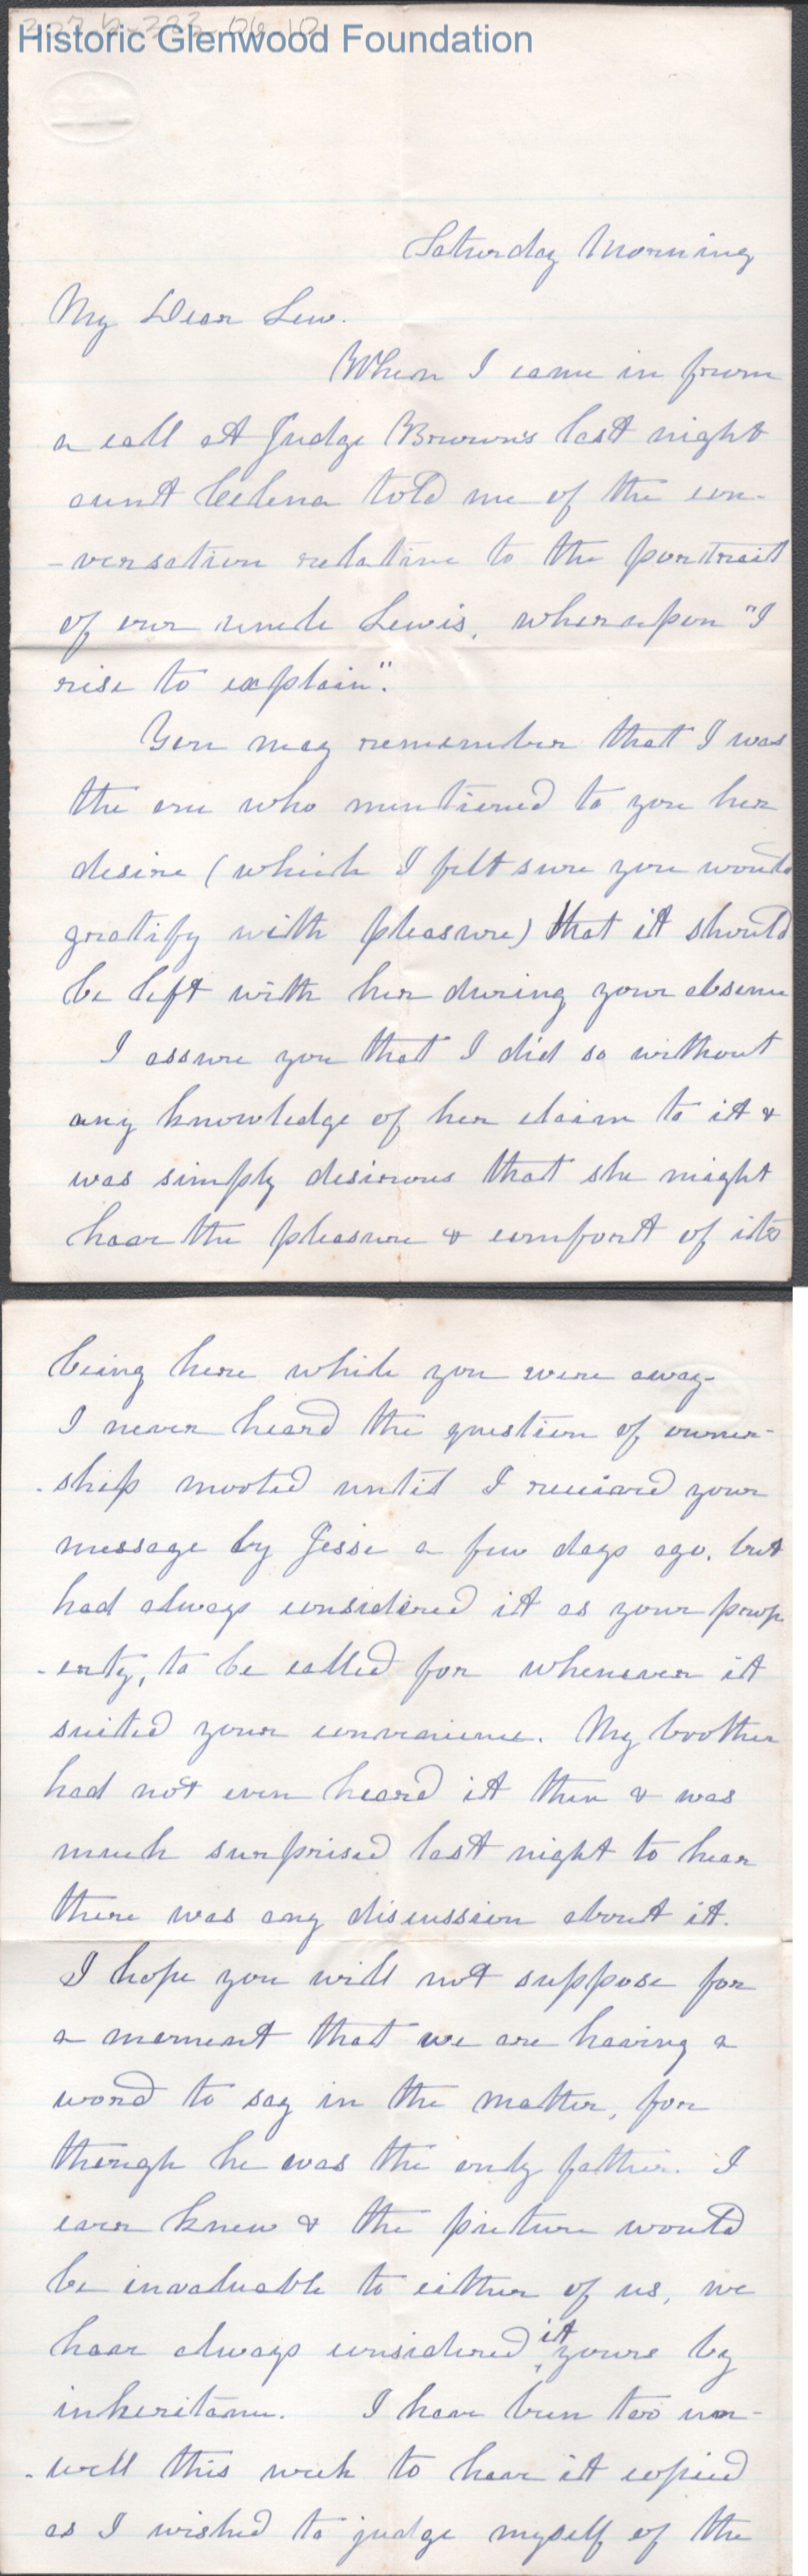 Historic Glenwood Foundation
Saturday Morning
My Dear Lew.
When I came in from
a call at Judge Brown's last night
aunt Celena told me of the con-
-versation relative to the portrait
of our uncle Lewis, whereupon "I
rise to explain".
You may remember that I was
the one who mentioned to you her
desire (which I felt sure you would
gratify with pleasure) that it should
be left with her during your absence
I assure you that I did so without
any knowledge of her claim to it &
was simply desirous that she might
have the pleasure & comfort of its
being here while you were away-
I never heard the question of owner-
-ship mooted until I received your
message by Jesse a few days ago, but
had always considered it as your prop
-erty, to be called for whenever it
suited your convenience. My brother
had not even heard it then & was
much surprised last night to hear
there was any discussion about it.
I hope you will not suppose for
a moment that we are having a
word to say in the matter, for
though he was the only father I
ever knew & the picture would
be invaluable to either of us, we
have always considered it yours by
inheritance. I have been too un-
-well this week to have it copied
as I wished to judge myself of the